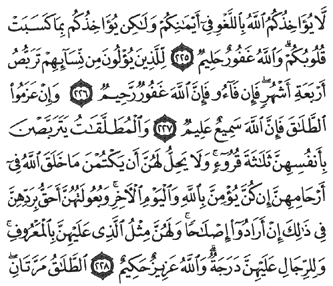 لَّا يُؤَاخِذُكُمُ اللَّهُ بِاللَّغْوِ فِي أَيْمَٰنِكُمْ وَلَٰكِن يُؤَاخِذُكُم بِمَا كَسَبَتْ
قُلُوبُكُمْ ۗ وَاللَّهُ غَفُورٌ حَلِيمٌ ٢٢٥ لِّلَّذِينَ يُؤْلُونَ مِن نِّسَآئِهِمْ تَرَبُّصُ
أَرْبَعَةِ أَشْهُرٍ ۖ فَإِن فَآءُو فَإِنَّ اللَّهَ غَفُورٌ رَّحِيمٌ ٢٢٦ وَإِنْ عَزَمُوا۟
الطَّلَٰقَ فَإِنَّ اللَّهَ سَمِيعٌ عَلِيمٌ ٢٢٧ وَالْمُطَلَّقَٰتُ يَتَرَبَّصْنَ
بِأَنفُسِهِنَّ ثَلَٰثَةَ قُرُوٓءٍ ۚ وَلَا يَحِلُّ لَهُنَّ أَن يَكْتُمْنَ مَا خَلَقَ اللَّهُ فِي
أَرْحَامِهِنَّ إِن كُنَّ يُؤْمِنَّ بِاللَّهِ وَالْيَوْمِ الْآخِرِ ۚ وَبُعُولَتُهُنَّ أَحَقُّ بِرَدِّهِنَّ
فِي ذَٰلِكَ إِنْ أَرَادُوٓا۟ إِصْلَٰحًا ۚ وَلَهُنَّ مِثْلُ الَّذِي عَلَيْهِنَّ بِالْمَعْرُوفِ ۚ
وَلِلرِّجَالِ عَلَيْهِنَّ دَرَجَةٌ ۗ وَاللَّهُ عَزِيزٌ حَكِيمٌ ٢٢٨ الطَّلَٰقُ مَرَّتَانِ ۖ